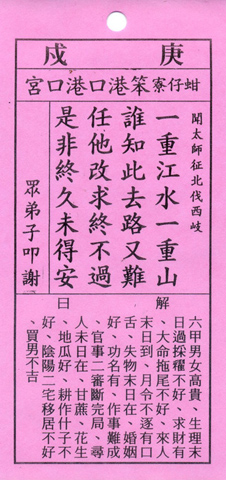 庚戍
蚶仔寮笨港口港口宮
聞太師征北伐西岐
一重江水一重山
誰知此去路又難
任他改求終不過
是非終久未得安
眾弟子叩謝
解曰
六甲男女高貴、生理末
日過採糴不好、求財有
、大命拖尾不好、來人
末日到、月令不遂有口
舌、失物末日在、婚姻
好、功名有、作事難成
、官事二審斷完局、尋
人未日在、甘蔗、花生
、地瓜好、耕作什子不
好、陰陽二宅移居不好
、買男不吉